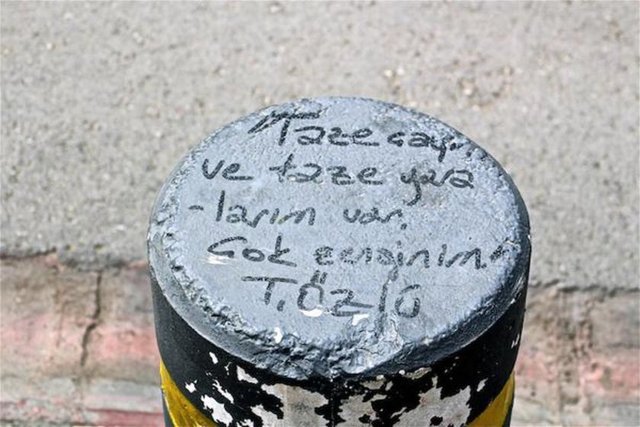 Taze çay
ve taze yara
-larım var.
Çok zenginim.
T. ÖZLÜ